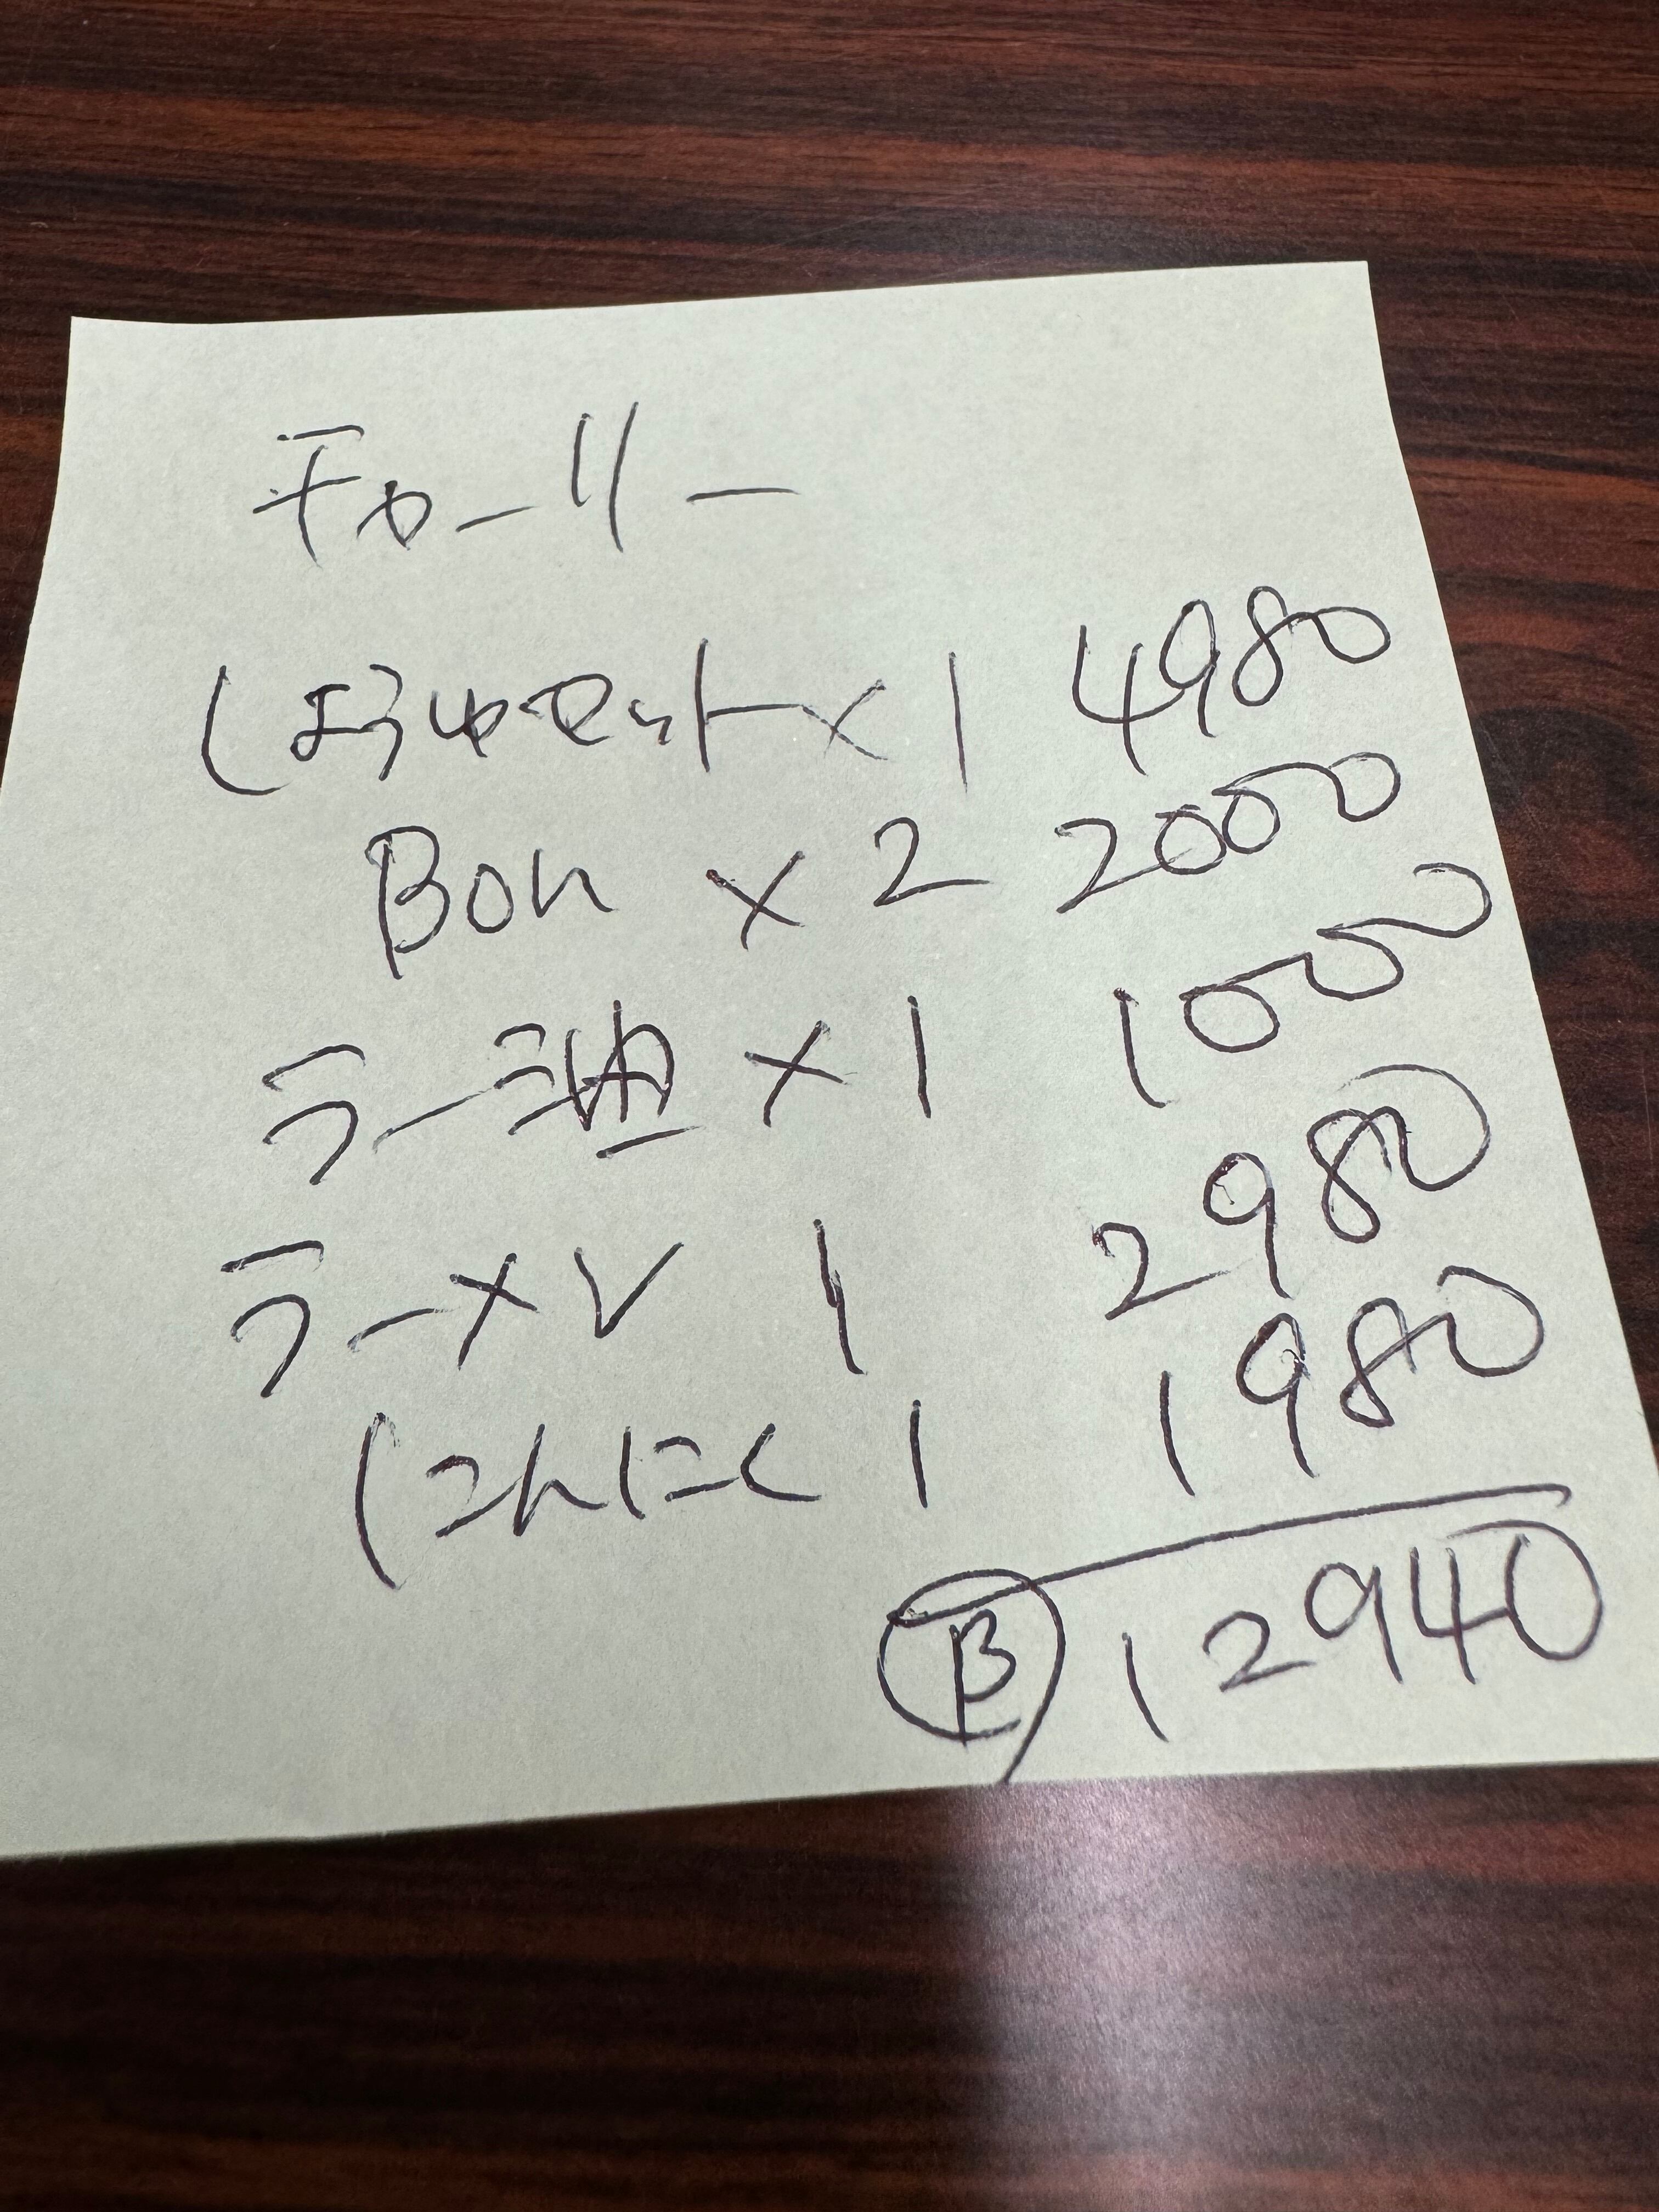 チャーリー
しょうゆセット×1 4980
Bon ×2 2000
ラー油 ×1 1000
ラーメン 1 2980
にんにく 1 1980
Ⓑ 12940